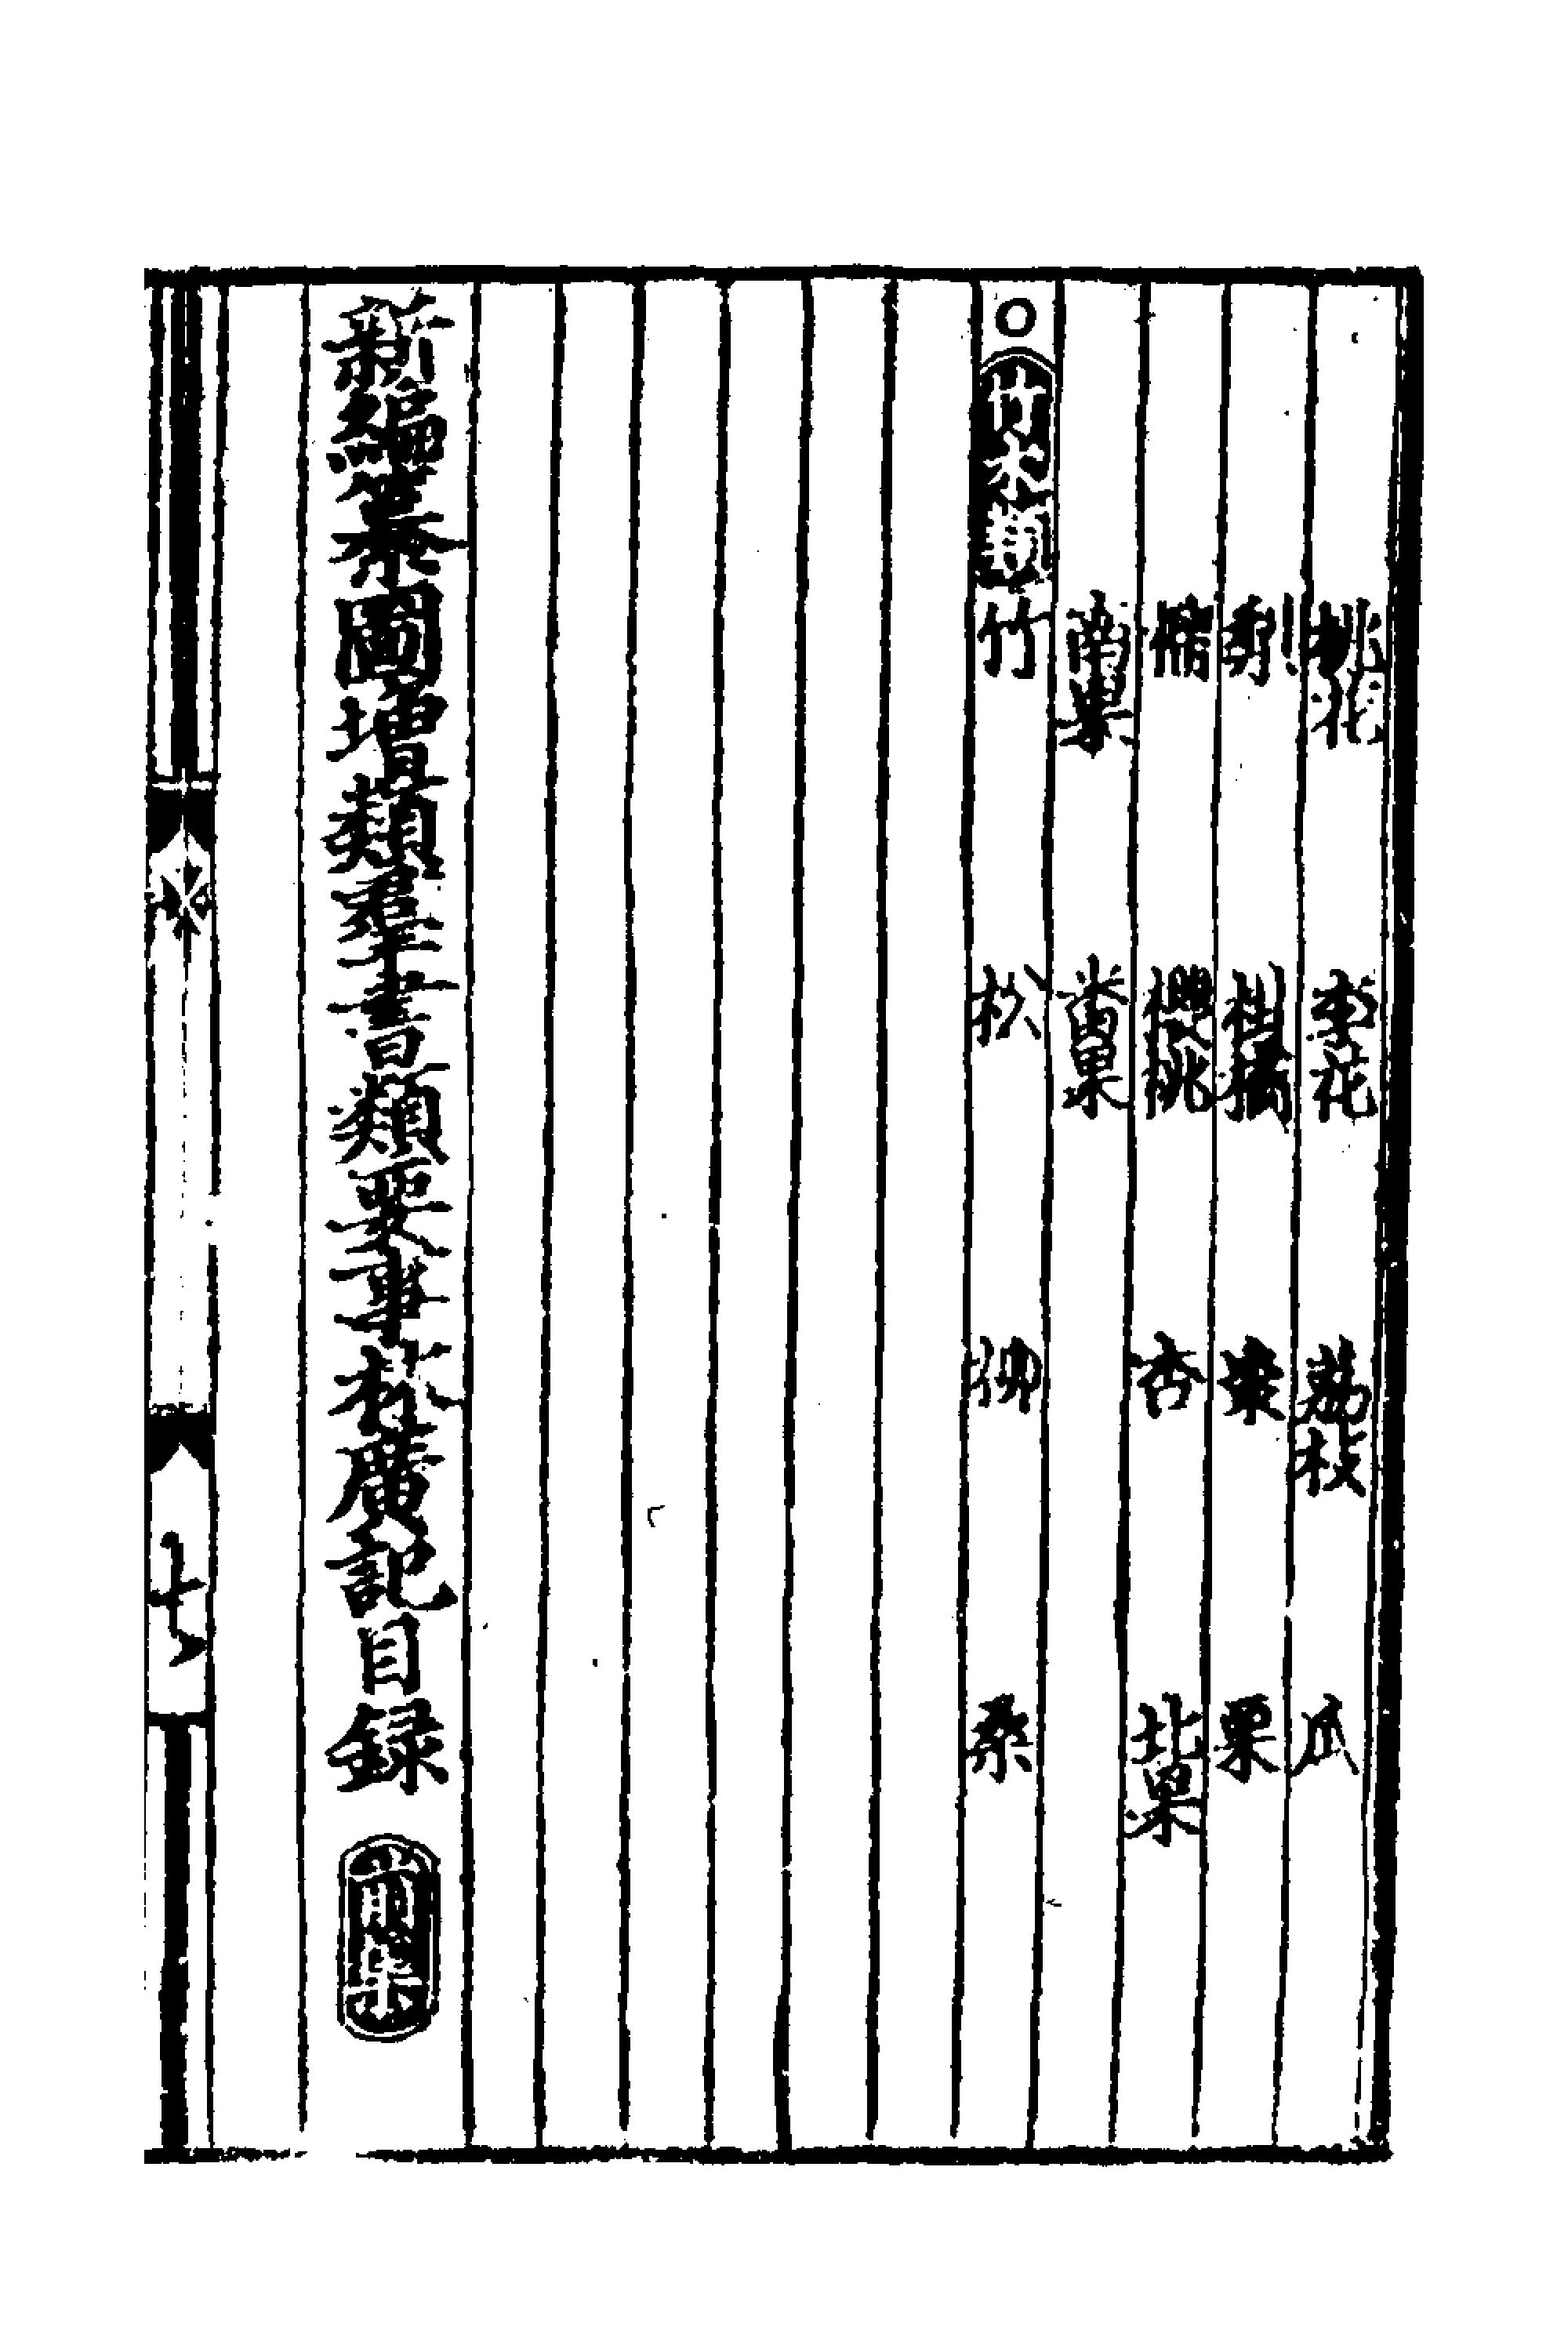 桃花　李花　荔枝　瓜
梨　柑橘　棗　栗
櫻桃　杏　北果
南果　畨果
○竹木類　竹　松　柳　桑
新編纂圖增類羣書類要事林廣記目録　前集
七